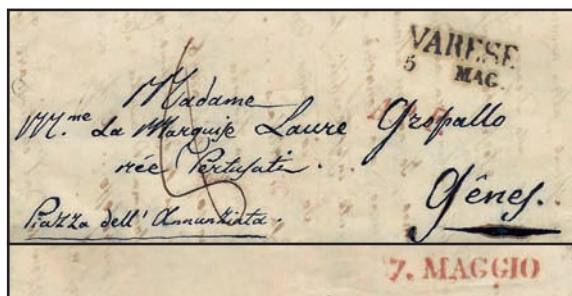 VARESE
5 MAG.
Madame
M.me La Marquise Laure Gropallo
née Pertusati.
Gênes.
Piazza dell' Annunziata.
7. MAGGIO